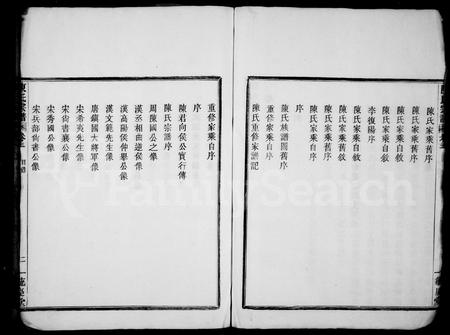 陳氏家乘舊序
陳氏家乘自敘
陳氏家乘舊序
李復陽序
陳氏家乘自敘
陳氏家乘舊序
陳氏族譜圖舊序
序
陳氏家乘自敘
陳氏重修家譜記
重修家乘自序
序
陳君向侯公實行傳
陳氏宗譜序
周陳國公之像
漢丞相曲逆侯像
漢高陽侯仲舉公像
漢文範先生像
唐鷹國大將軍像
宋希夷先生像
宋尙書襄公像
宋秀國公像
宋兵部尙書公像
二
FamilySearch